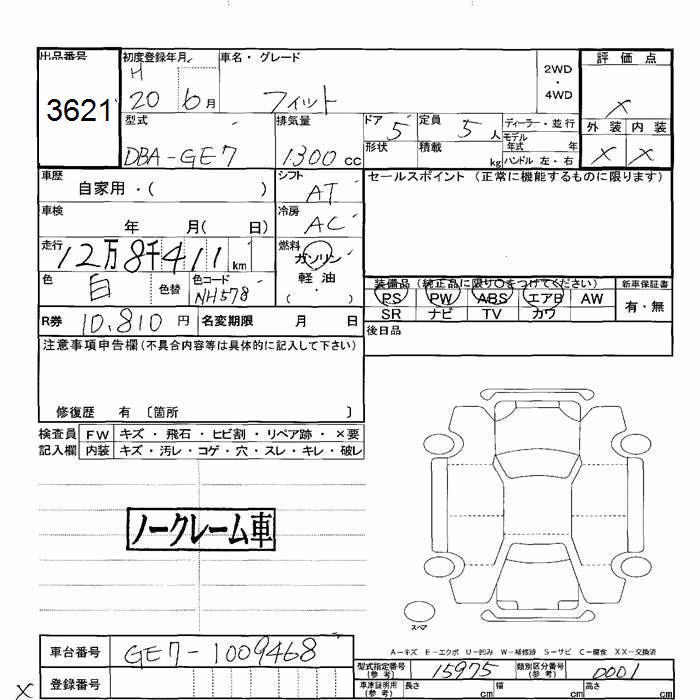 出品番号
3621
初度登録年月
H
20 6月
車名・グレード
フィット
2WD
・
4WD
評価点
×
外装 内装
× ×
型式
DBA-GE7
排気量
1300 cc
ドア 5
定員 5 人
形状
積載 kg
ディーラー・並行
モデル年式 年
ハンドル 左・右
車歴
自家用・( )
シフト
AT
セールスポイント (正常に機能するものに限ります)
車検
年 月( 日)
冷房
AC
走行
12万8千411 km
燃料
ガソリン
軽油
( ・ )
色
白
色替
色コード
NH578
装備品 (純正品に限り○をつけてください)
新車保証書
PS PW ABS エアB AW
SR ナビ TV カワ
有・無
R券 10,810 円
名変期限 月 日
後日品
注意事項申告欄(不具合内容等は具体的に記入して下さい)
修復歴 有 〔箇所 〕
検査員 FW キズ・飛石・ヒビ割・リペア跡・×要
記入欄 内装 キズ・汚レ・コゲ・穴・スレ・キレ・破レ
ノークレーム車
スペア
A-キズ E-エクボ U-凹み W-補修跡 S-サビ C-腐食 XX-交換済
車台番号 GE7-1009468
登録番号
×
型式指定番号(参考) 15975
類別区分番号(参考) 0001
車庫証明用(参考) 長さ cm 幅 cm 高さ cm